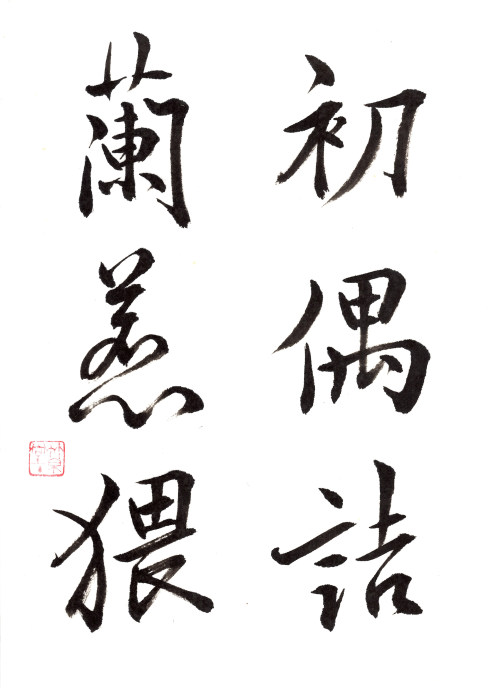 初偶詰
蘭惹猥